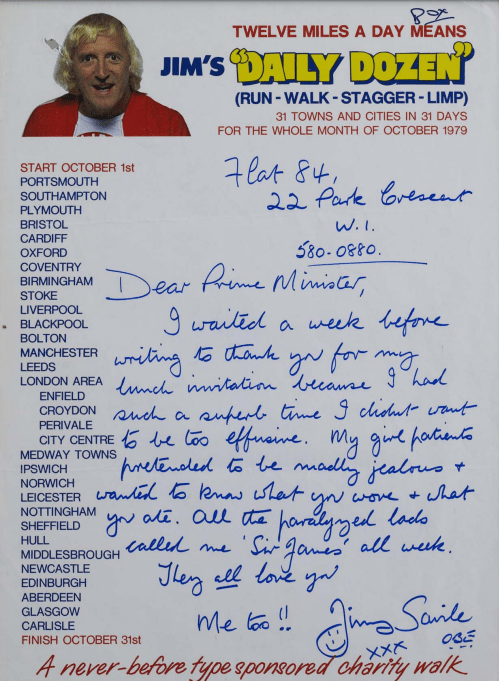 Pox
TWELVE MILES A DAY MEANS
JIM'S "DAILY DOZEN"
(RUN - WALK - STAGGER - LIMP)
31 TOWNS AND CITIES IN 31 DAYS
FOR THE WHOLE MONTH OF OCTOBER 1979
START OCTOBER 1st
PORTSMOUTH
SOUTHAMPTON
PLYMOUTH
BRISTOL
CARDIFF
OXFORD
COVENTRY
BIRMINGHAM
STOKE
LIVERPOOL
BLACKPOOL
BOLTON
MANCHESTER
LEEDS
LONDON AREA
ENFIELD
CROYDON
PERIVALE
CITY CENTRE
MEDWAY TOWNS
IPSWICH
NORWICH
LEICESTER
NOTTINGHAM
SHEFFIELD
HULL
MIDDLESBROUGH
NEWCASTLE
EDINBURGH
ABERDEEN
GLASGOW
CARLISLE
FINISH OCTOBER 31st
Flat 84,
22 Park Crescent
W.1.
580-0880.
Dear Prime Minister,
I waited a week before
writing to thank you for my
lunch invitation because I had
such a superb time I didnt want
to be too effusive. My girl patients
pretended to be madly jealous +
wanted to know what you wore + what
you ate. All the paralyzed lads
called me 'Sir James' all week.
They all love you
Me too !! Jimmy Savile
OBE
xxx
A never-before type sponsored charity walk